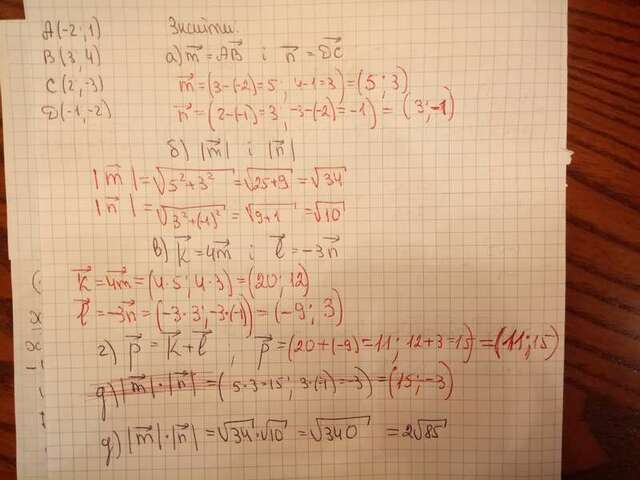 A(-2; 1)
B(3; 4)
C(2; -3)
D(-1; -2)
Знайти:
а) m = AB ; n = DC
m = (3-(-2)=5 ; 4-1=3) = (5; 3)
n = (2-(-1)=3; -3-(-2)=-1) = (3; -1)
б) |m| ; |n|
|m| = √5²+3² = √25+9 = √34
|n| = √3²+(-1)² = √9+1 = √10
в) k = 4m ; ℓ = -3n
k = 4m = (4·5; 4·3) = (20; 12)
ℓ = -3n = (-3·3; -3·(-1)) = (-9; 3)
г) p = k+ℓ ; p = (20+(-9)=11; 12+3=15) = (11; 15)
g) |m|·|n| = (5·3=15; 3·(-1)=-3) = (15; -3)
g) |m|·|n| = √34·√10 = √340 = 2√85